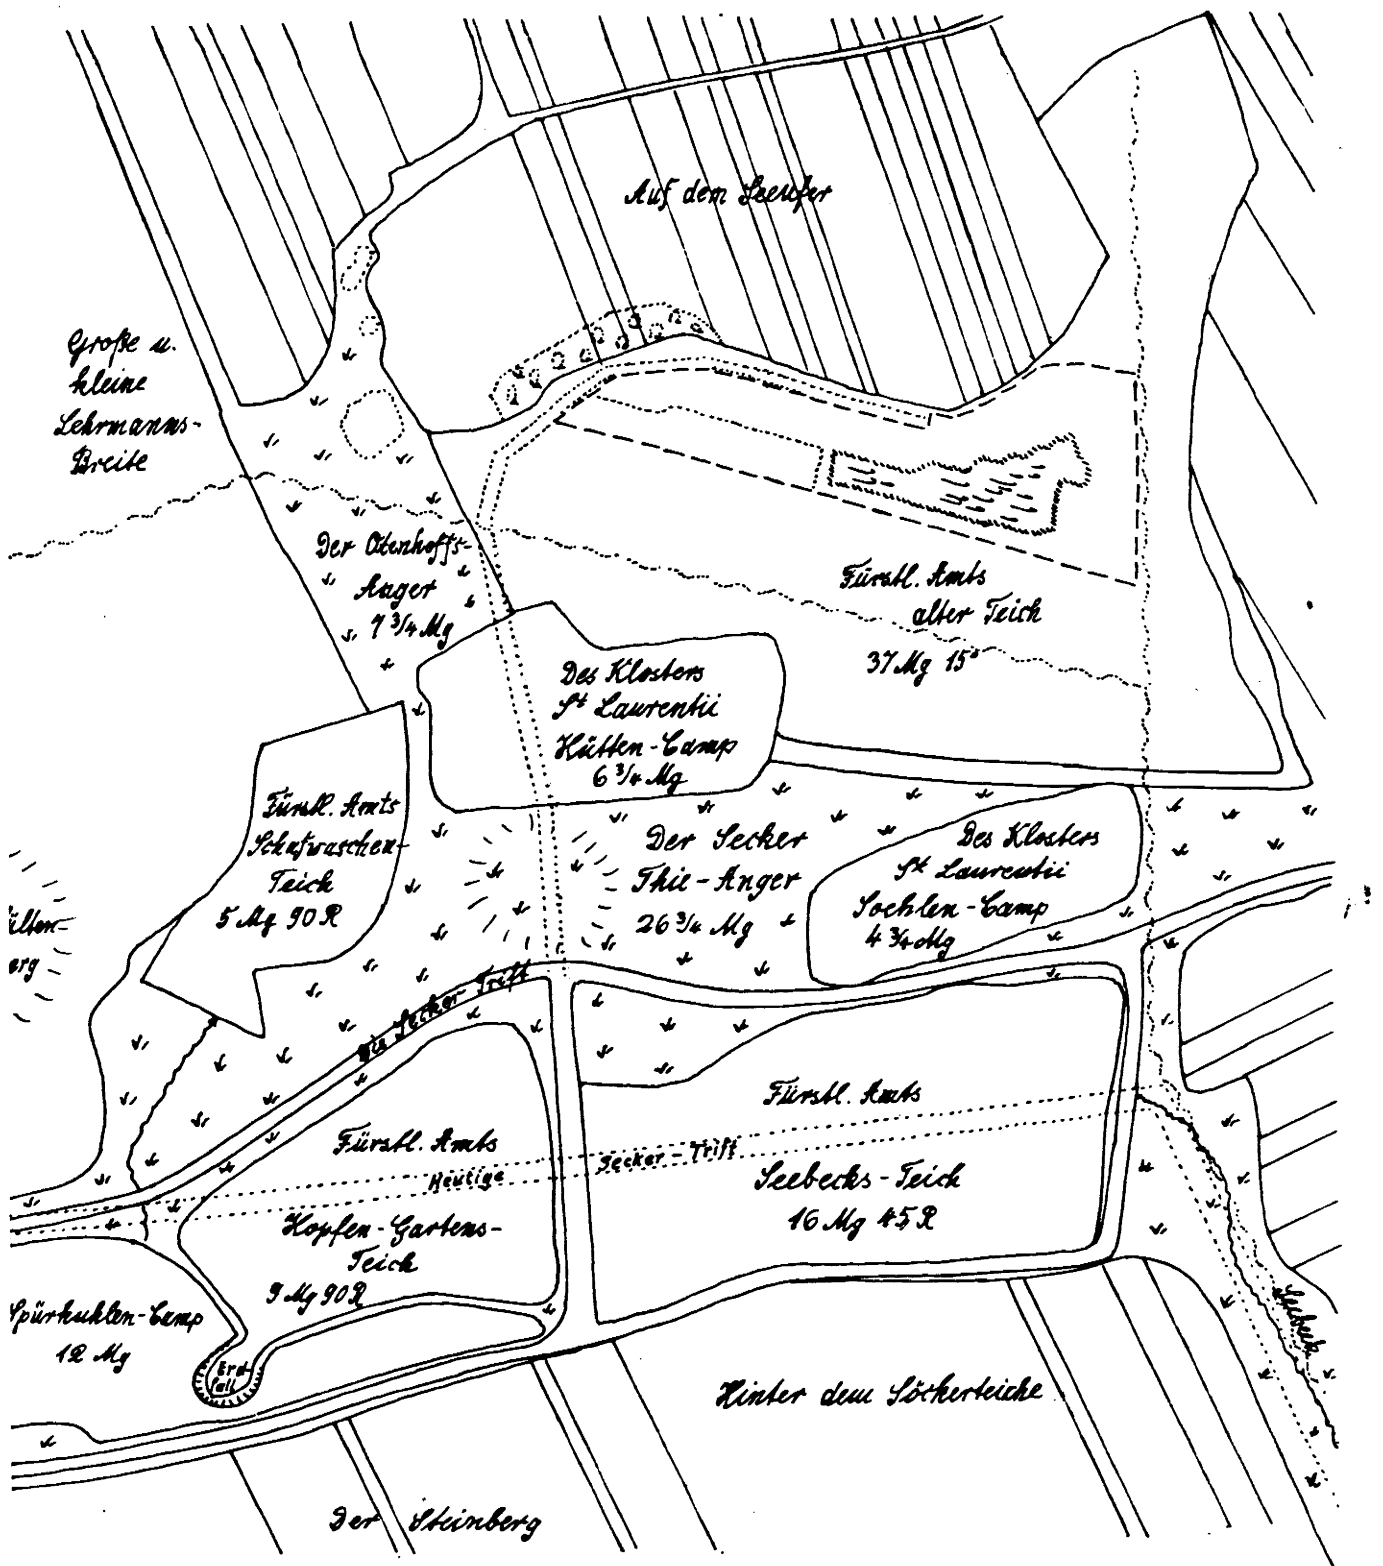 Auf dem Seeufer
Große u.
kleine
Lehrmanns-
Breite
Der Otenhoffs-
Anger
7 3/4 Mg
Fürstl. Amts
alter Teich
37 Mg 15
Des Klosters
St Laurentii
Hütten-Camp
6 3/4 Mg
Fürstl. Amts
Schafwaschen-
Teich
5 Mg 90 R
Der Secker
Thie-Anger
26 3/4 Mg
Des Klosters
St Laurentii
Soehlen-Camp
4 3/4 Mg
älten-
erg
Die Secker Trift
Fürstl. Amts
Seebecks-Teich
16 Mg 45 R
Heutige Secker-Trift
Fürstl. Amts
Hopfen-Gartens-
Teich
9 Mg 90 R
Spürkuhlen-Camp
12 Mg
Erd
fall
Seebeck
Hinter dem Söckerteiche
Der Steinberg